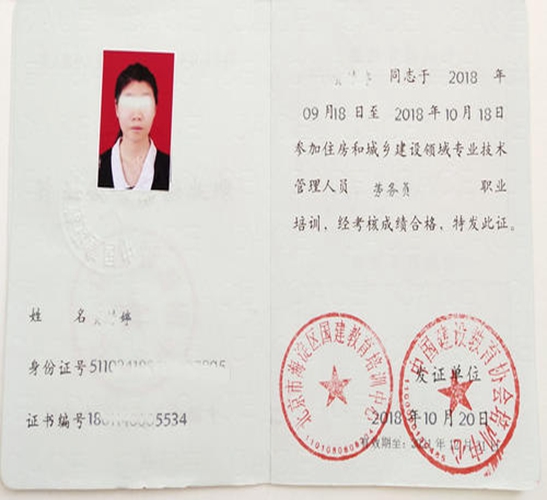 姓 名 婷
身份证号
证书编号 5534
同志于 2018 年
09月18日至 2018年10月18日
参加住房和城乡建设领域专业技术
管理人员 劳务员 职业
培训，经考核成绩合格，特发此证。
北京市海淀区国建教育培训中心
中国建设教育协会培训中心
发证单位
2018年10月20日
有效期至：